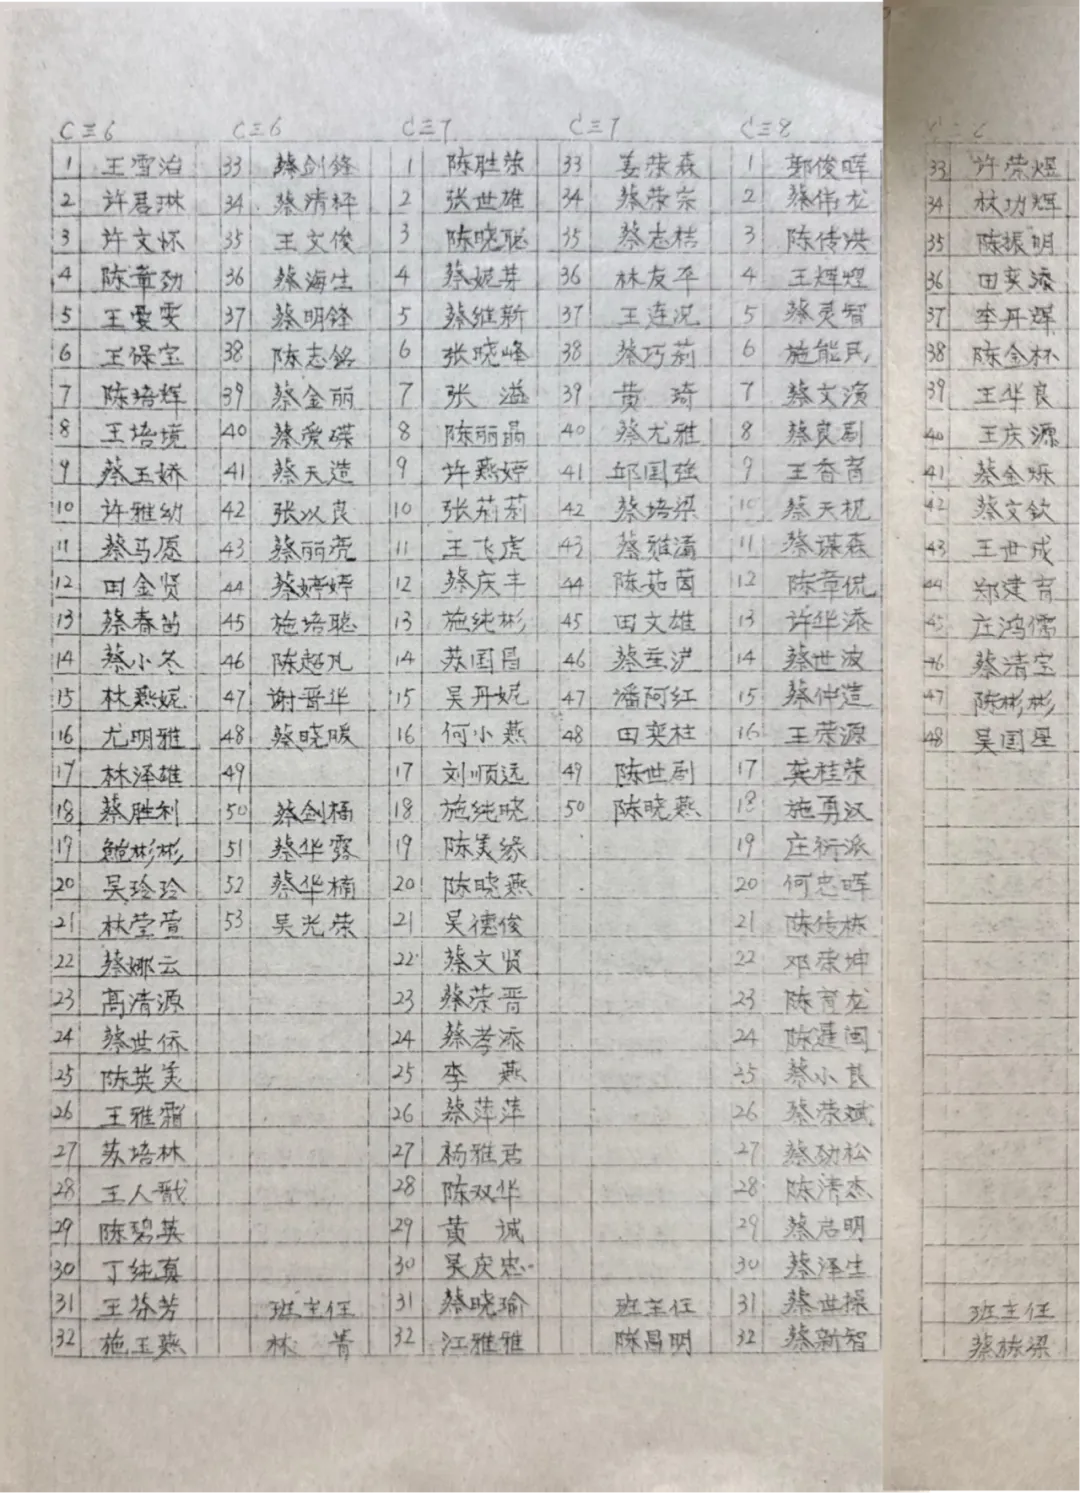 C三6 C三6 C三7 C三7 C三8
1 王雪泊 33 蔡剑锋 1 陈胜荣 33 姜荣森 1 郭俊晖 33 许荣煜
2 许君琳 34 蔡清秤 2 张世雄 34 蔡荣宗 2 蔡伟龙 34 林功辉
3 许文怀 35 王文俊 3 陈晓聪 35 蔡志桔 3 陈传洪 35 陈振明
4 陈章劲 36 蔡海生 4 蔡妮芽 36 林友平 4 王辉煌 36 田奕添
5 王雯雯 37 蔡明锋 5 蔡维新 37 王连况 5 蔡灵智 37 李丹辉
6 王保宝 38 陈志铭 6 张晓峰 38 蔡巧莉 6 施能民 38 陈金杯
7 陈培辉 39 蔡金丽 7 张溢 39 黄琦 7 蔡文演 39 王华良
8 王培境 40 蔡爱碟 8 陈丽晶 40 蔡尤雅 8 蔡良剧 40 王庆源
9 蔡玉娇 41 蔡天造 9 许燕婷 41 邱国强 9 王香菁 41 蔡金烁
10 许雅幼 42 张以良 10 张莉莉 42 蔡培梁 10 蔡天枧 42 蔡文钦
11 蔡马愿 43 蔡丽亮 11 王飞虎 43 蔡雅浦 11 蔡谋森 43 王世成
12 田金贤 44 蔡婷婷 12 蔡庆丰 44 陈茹茵 12 陈章侃 44 郑建育
13 蔡春苗 45 施培聪 13 施纯彬 45 田文雄 13 许华添 45 庄鸿儒
14 蔡小冬 46 陈超凡 14 苏国昌 46 蔡垂沪 14 蔡世波 46 蔡清宝
15 林燕妮 47 谢晋华 15 吴丹妮 47 潘阿红 15 蔡仲造 47 陈彬彬
16 尤明雅 48 蔡晓暖 16 何小燕 48 田奕柱 16 王荣源 48 吴国星
17 林泽雄 49 17 刘顺远 49 陈世剧 17 龚桂荣
18 蔡胜利 50 蔡剑楠 18 施纯晓 50 陈晓燕 18 施勇汉
19 鲍彬彬 51 蔡华露 19 陈美缘 19 庄衍派
20 吴玲玲 52 蔡华楠 20 陈晓燕 20 何忠晖
21 林莹萱 53 吴光荣 21 吴德俊 21 陈传栋
22 蔡娜云 22 蔡文贤 22 邓荣坤
23 高清源 23 蔡荣晋 23 陈育龙
24 蔡世侨 24 蔡孝添 24 陈建国
25 陈英美 25 李燕 25 蔡小良
26 王雅霜 26 蔡萍萍 26 蔡荣斌
27 苏培林 27 杨雅君 27 蔡劲松
28 王人戬 28 陈双华 28 陈清杰
29 陈碧英 29 黄诚 29 蔡启明
30 丁纯真 30 吴庆忠 30 蔡泽生
31 王芬芳 班主任 31 蔡晓瑜 班主任 31 蔡世操 班主任
32 施玉燕 林菁 32 汪雅雅 陈昌明 32 蔡新智 蔡栋梁